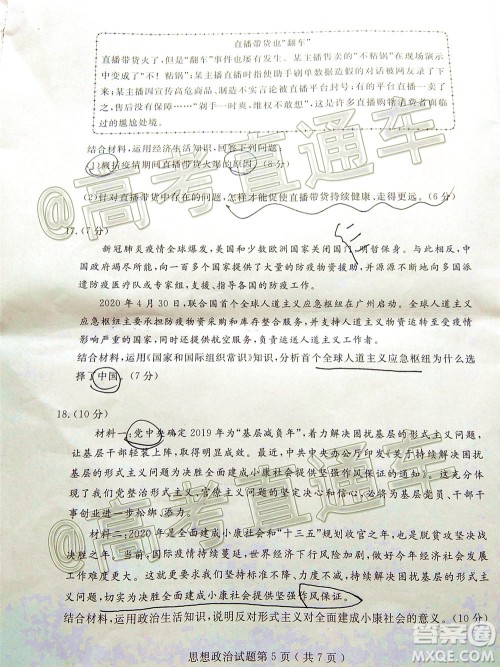 直播带货也“翻车”
直播带货火了,但是“翻车”事件也屡有发生。某主播售卖的“不粘锅”在现场演示
中变成了“不!粘锅”;某主播直播时指使助手刷单数据造假的对话被网友录了下
来;某主播因宣传高危商品、制造不实言论被直播平台封号;有的平台直播一卖了
之,售后没有保障……“剁手一时爽,维权不敢想”,这是许多直播购销消费者面临
过的尴尬处境。
结合材料,运用经济生活知识,回答下列问题:
(1)疫情期间直播带货火爆的原因(8分)
(2)针对直播带货中存在的问题,怎样才能促使直播带货持续健康、走得更远。(6分)
17.(7分)
新冠肺炎疫情全球爆发,美国和少数欧洲国家关闭国门,明哲保身。与此同时,中
国政府竭尽所能,向一百多个国家提供了大量的防疫物资援助,并克服困难向多国派
遣防疫医疗队或专家组,支援、指导各国的防疫工作。
2020年4月30日,联合国首个全球人道主义应急枢纽在广州启动。全球人道主义
应急枢纽将主要承担防疫物资采购和库存整合服务,并为人道主义物资运转至受疫情
影响严重的国家和人群,同时还将提供航空服务,负责运送人道主义工作者。
结合材料,运用《国家和国际组织常识》知识,分析首个全球人道主义应急枢纽为什么选
择了中国。(7分)
18.(10分)
材料一:党中央确定2019年为“基层减负年”,着力解决困扰基层的形式主义问题,
让基层干部轻装上阵,取得明显成效。最近,中共中央办公厅印发《关于持续解决困扰
基层的形式主义问题为决胜全面建成小康社会提供坚强作风保证的通知》。这充分体
现了我们党整治形式主义、官僚主义问题的坚强决心和信心,必将为基层党员、干部干
事创业进一步松绑、添力。
材料二:2020年是全面建成小康社会和“十三五”规划收官之年,也是脱贫攻坚决战
决胜之年。当前,国际疫情持续蔓延,世界经济下行风险加剧,做好今年经济社会发展
工作难度更大。我们更要坚持标准不降、力度不减,持续解决困扰基层的形式主义问
题,切实为决胜全面建成小康社会提供坚强作风保证。
结合材料,运用政治生活知识,说明反对形式主义对全面建成小康社会的意义。(10分)
思想政治试题第5页(共7页)
@高考直通车
@高考直通车
@高考直通车